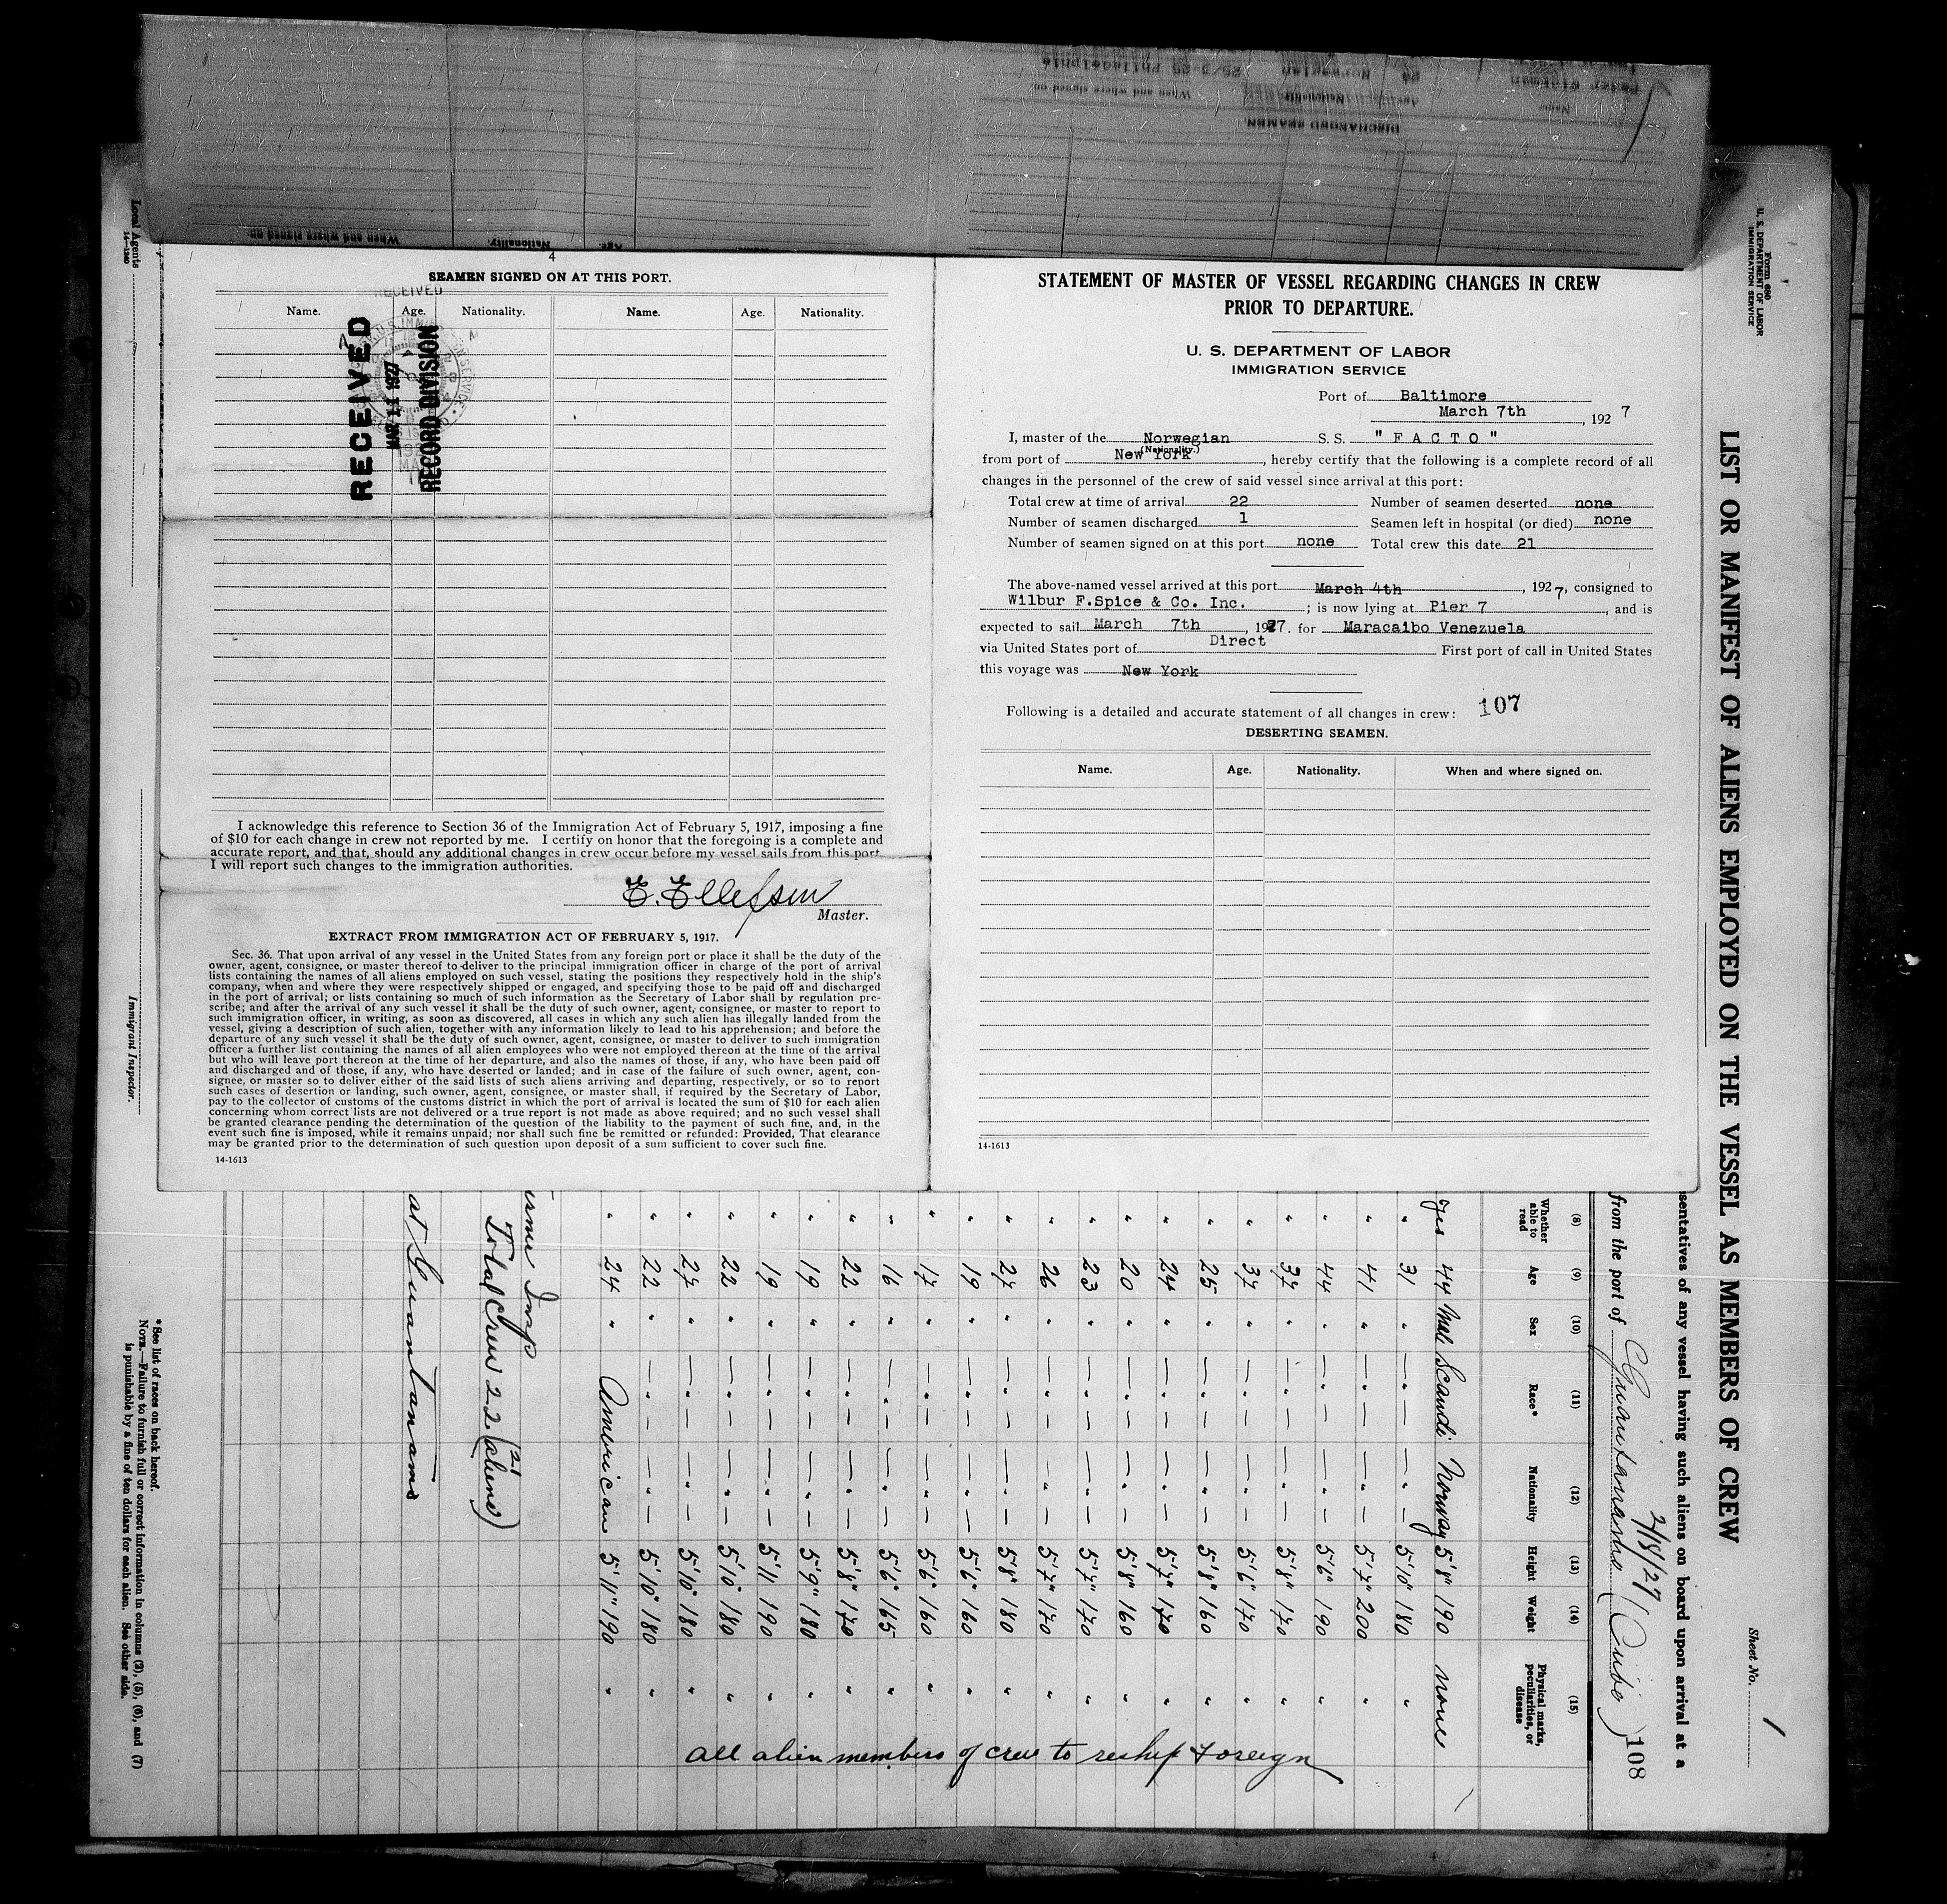 DISCHARGED SEAMEN
Name
Age
Nationality
When and where signed on
Norwegian
Philadelphia
When and where signed on
Nationality.
Age
4
SEAMEN SIGNED ON AT THIS PORT.
Name.
Age.
Nationality.
Name.
Age.
Nationality.
RECEIVED
RECEIVED
MAR 11 1927
RECORD DIVISION
I acknowledge this reference to Section 36 of the Immigration Act of February 5, 1917, imposing a fine
of $10 for each change in crew not reported by me. I certify on honor that the foregoing is a complete and
accurate report, and that, should any additional changes in crew occur before my vessel sails from this port
I will report such changes to the immigration authorities.
E. Ellefsen
Master.
EXTRACT FROM IMMIGRATION ACT OF FEBRUARY 5, 1917.
Sec. 36. That upon arrival of any vessel in the United States from any foreign port or place it shall be the duty of the
owner, agent, consignee, or master thereof to deliver to the principal immigration officer in charge of the port of arrival
lists containing the names of all aliens employed on such vessel, stating the positions they respectively hold in the ship's
company, when and where they were respectively shipped or engaged, and specifying those to be paid off and discharged
in the port of arrival; or lists containing so much of such information as the Secretary of Labor shall by regulation pre-
scribe; and after the arrival of any such vessel it shall be the duty of such owner, agent, consignee, or master to report to
such immigration officer, in writing, as soon as discovered, all cases in which any such alien has illegally landed from the
vessel, giving a description of such alien, together with any information likely to lead to his apprehension; and before the
departure of any such vessel it shall be the duty of such owner, agent, consignee, or master to deliver to such immigration
officer a further list containing the names of all alien employees who were not employed thereon at the time of the arrival
but who will leave port thereon at the time of her departure, and also the names of those, if any, who have been paid off
and discharged and of those, if any, who have deserted or landed; and in case of the failure of such owner, agent, con-
signee, or master so to deliver either of the said lists of such aliens arriving and departing, respectively, or so to report
such cases of desertion or landing, such owner, agent, consignee, or master shall, if required by the Secretary of Labor,
pay to the collector of customs of the customs district in which the port of arrival is located the sum of $10 for each alien
concerning whom correct lists are not delivered or a true report is not made as above required; and no such vessel shall
be granted clearance pending the determination of the question of the liability to the payment of such fine, and, in the
event such fine is imposed, while it remains unpaid; nor shall such fine be remitted or refunded: Provided, That clearance
may be granted prior to the determination of such question upon deposit of a sum sufficient to cover such fine.
14-1613
STATEMENT OF MASTER OF VESSEL REGARDING CHANGES IN CREW
PRIOR TO DEPARTURE.
U. S. DEPARTMENT OF LABOR
IMMIGRATION SERVICE
Port of Baltimore
March 7th, 1927
I, master of the Norwegian S. S. "FACTO"
(Nationality.)
from port of New York, hereby certify that the following is a complete record of all
changes in the personnel of the crew of said vessel since arrival at this port:
Total crew at time of arrival 22 Number of seamen deserted none
Number of seamen discharged 1 Seamen left in hospital (or died) none
Number of seamen signed on at this port none Total crew this date 21
The above-named vessel arrived at this port March 4th, 1927, consigned to
Wilbur F.Spice & Co. Inc. ; is now lying at Pier 7, and is
expected to sail March 7th, 1927. for Maracaibo Venezuela
via United States port of Direct First port of call in United States
this voyage was New York
Following is a detailed and accurate statement of all changes in crew: 107
DESERTING SEAMEN.
Name. Age. Nationality. When and where signed on.
14-1613
Form 680
U. S. DEPARTMENT OF LABOR
IMMIGRATION SERVICE
LIST OR MANIFEST OF ALIENS EMPLOYED ON THE VESSEL AS MEMBERS OF CREW
Sheet No. 1
sentatives of any vessel having such aliens on board upon arrival at a
2/18/27
from the port of Guantanamo (Cuba) 108
(8) Whether able to read
(9) Age
(10) Sex
(11) Race*
(12) Nationality
(13) Height
(14) Weight
(15) Physical marks, peculiarities, or disease
yes 44 Male Scandi Norway 5'8" 190 none
" 31 " — " — — " — 5'10" 180 "
" 41 " — " — — " — 5'7" 200 "
" 44 " — " — — " — 5'6" 190 "
" 37 " — " — — " — 5'8" 170 "
" 37 " — " — — " — 5'6" 170 "
" 25 " — " — — " — 5'8" 160 "
" 24 " — " — — " — 5'7" 170 "
" 20 " — " — — " — 5'8" 160 "
" 23 " — " — — " — 5'7" 170 "
" 26 " — " — — " — 5'7" 170 "
" 27 " — " — — " — 5'8" 180 "
" 19 " — " — — " — 5'6" 160 "
" 17 " — " — — " — 5'6" 160 "
" 16 " — " — — " — 5'6" 165 "
" 22 " — " — — " — 5'8" 170 "
" 19 " — " — — " — 5'9" 180 "
" 19 " — " — — " — 5'11" 190 "
" 22 " — " — — " — 5'10" 180 "
" 27 " — " — — " — 5'10" 180 "
" 22 " — " — — " — 5'10" 180 "
" 24 " American 5'11" 190 "
Insp
Total Crew 22 (21 aliens)
at Guantanamo
All alien members of crew to reship foreign
* See list of races on back hereof.
NOTE.—Failure to furnish full or correct information in columns (3), (5), (6), and (7)
is punishable by a fine of ten dollars for each alien. See other side.
Local Agents
14—1240
Immigrant Inspector.